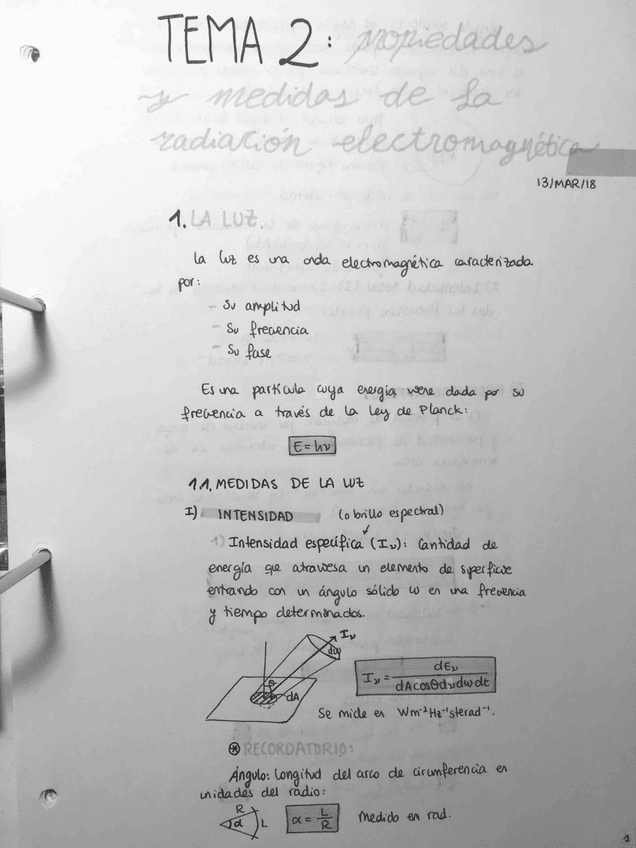 TEMA 2: propiedades
y medidas de la
radiación electromagnética
13/MAR/18
1. LA LUZ.
La luz es una onda electromagnética caracterizada
por:
- Su amplitud
- Su frecuencia
- Su fase
Es una partícula cuya energía viene dada por su
frecuencia a través de la Ley de Planck:
E = hν
1.1. MEDIDAS DE LA LUZ
I) INTENSIDAD (o brillo espectral)
1) Intensidad específica (Iν): Cantidad de
energía que atraviesa un elemento de superficie
entrando con un ángulo sólido ω en una frecuencia
y tiempo determinados.
Iν
dω
θ
dA
Iν = dEν / dAcosθdνdωdt
Se mide en Wm⁻²Hz⁻¹sterad⁻¹.
⊛ RECORDATORIO:
Ángulo: Longitud del arco de circunferencia en
unidades del radio:
R
α L
α = L/R medido en rad.
1